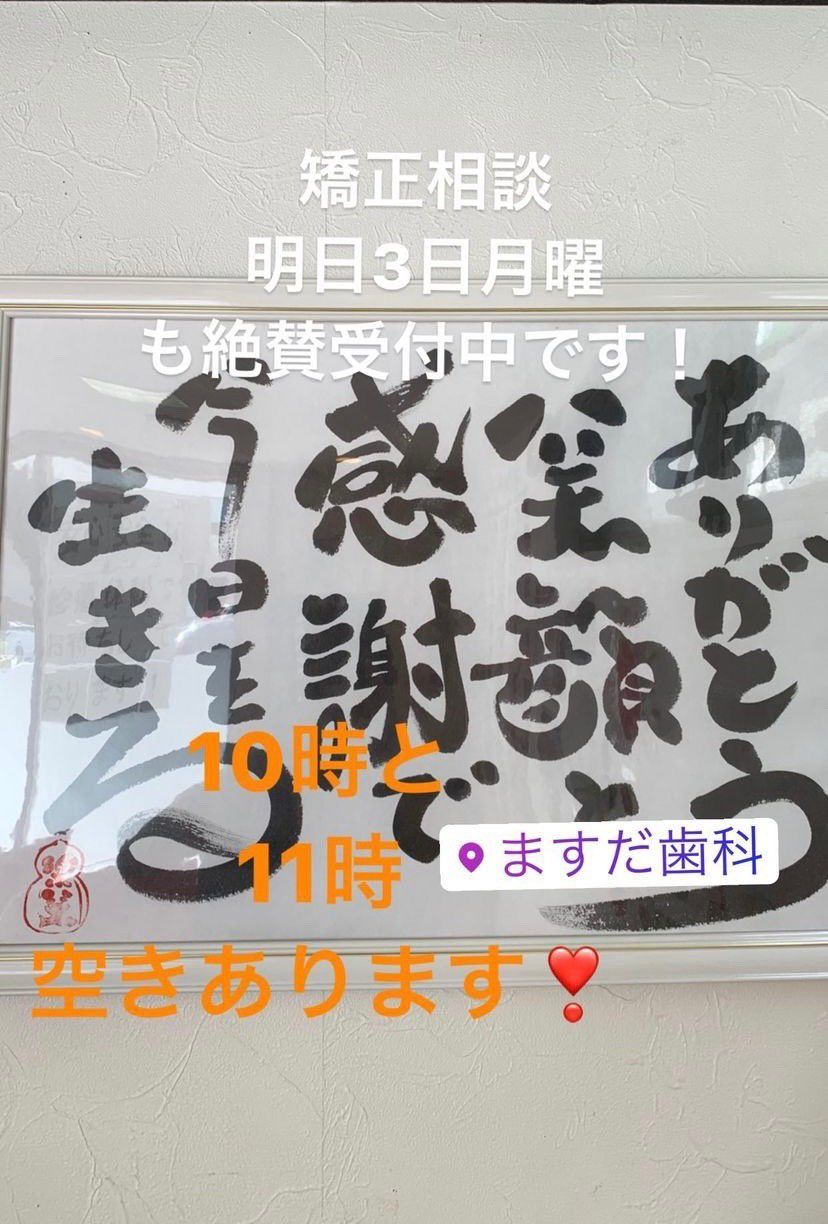 矯正相談
明日3日月曜
も絶賛受付中です！
ありがとう
笑顔と
感謝で
今日を
生きる
10時と
11時
ますだ歯科
空きあります❣️